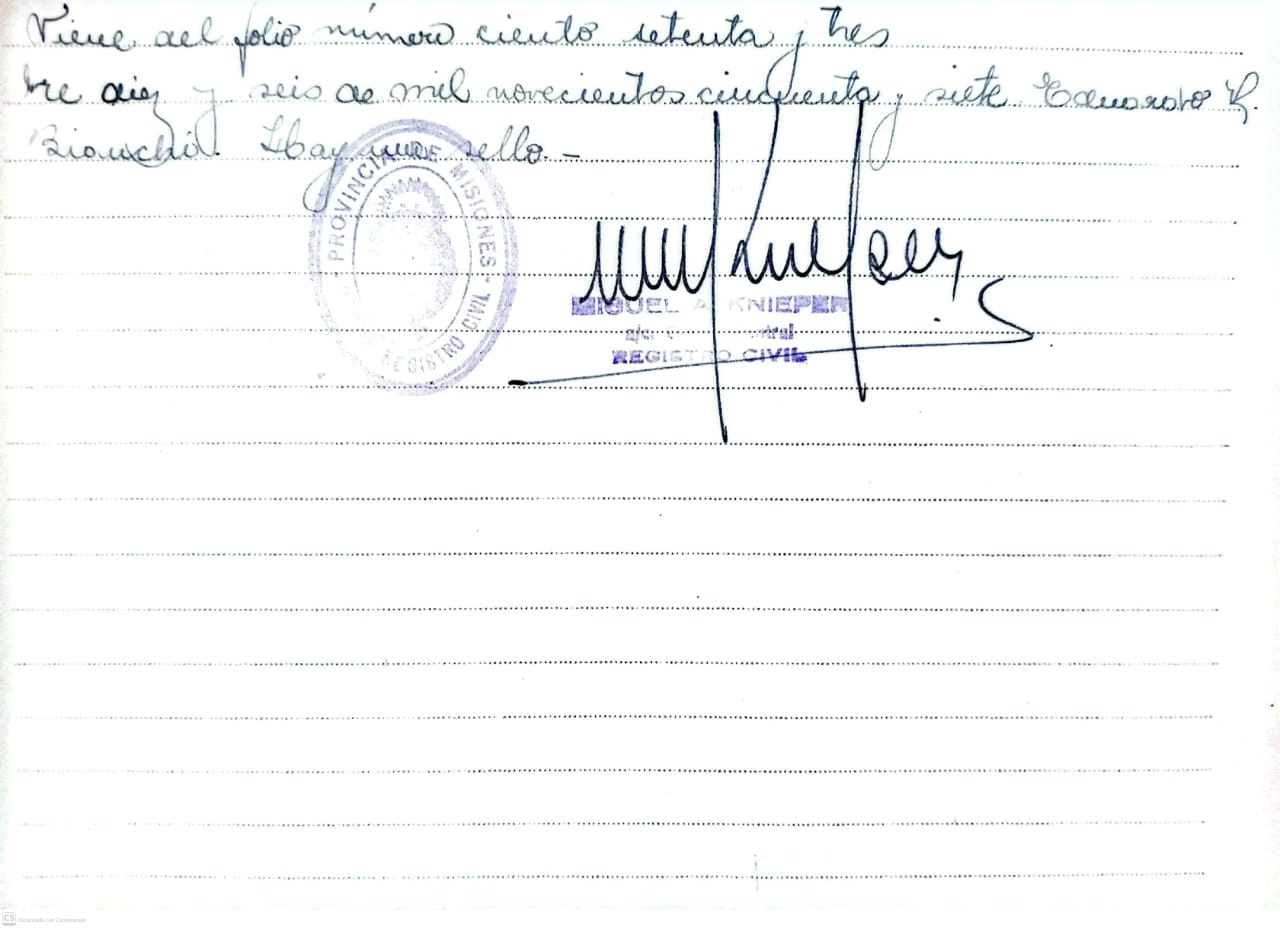 Viene del folio número ciento setenta y tres
bre diez y seis de mil novecientos cincuenta y siete Eduardo L.
Bianchi. Hay un sello.-
PROVINCIA DE MISIONES
REGISTRO CIVIL
MIGUEL A. KNIEPER
a/c.
REGISTRO CIVIL
CS Escaneado con CamScanner